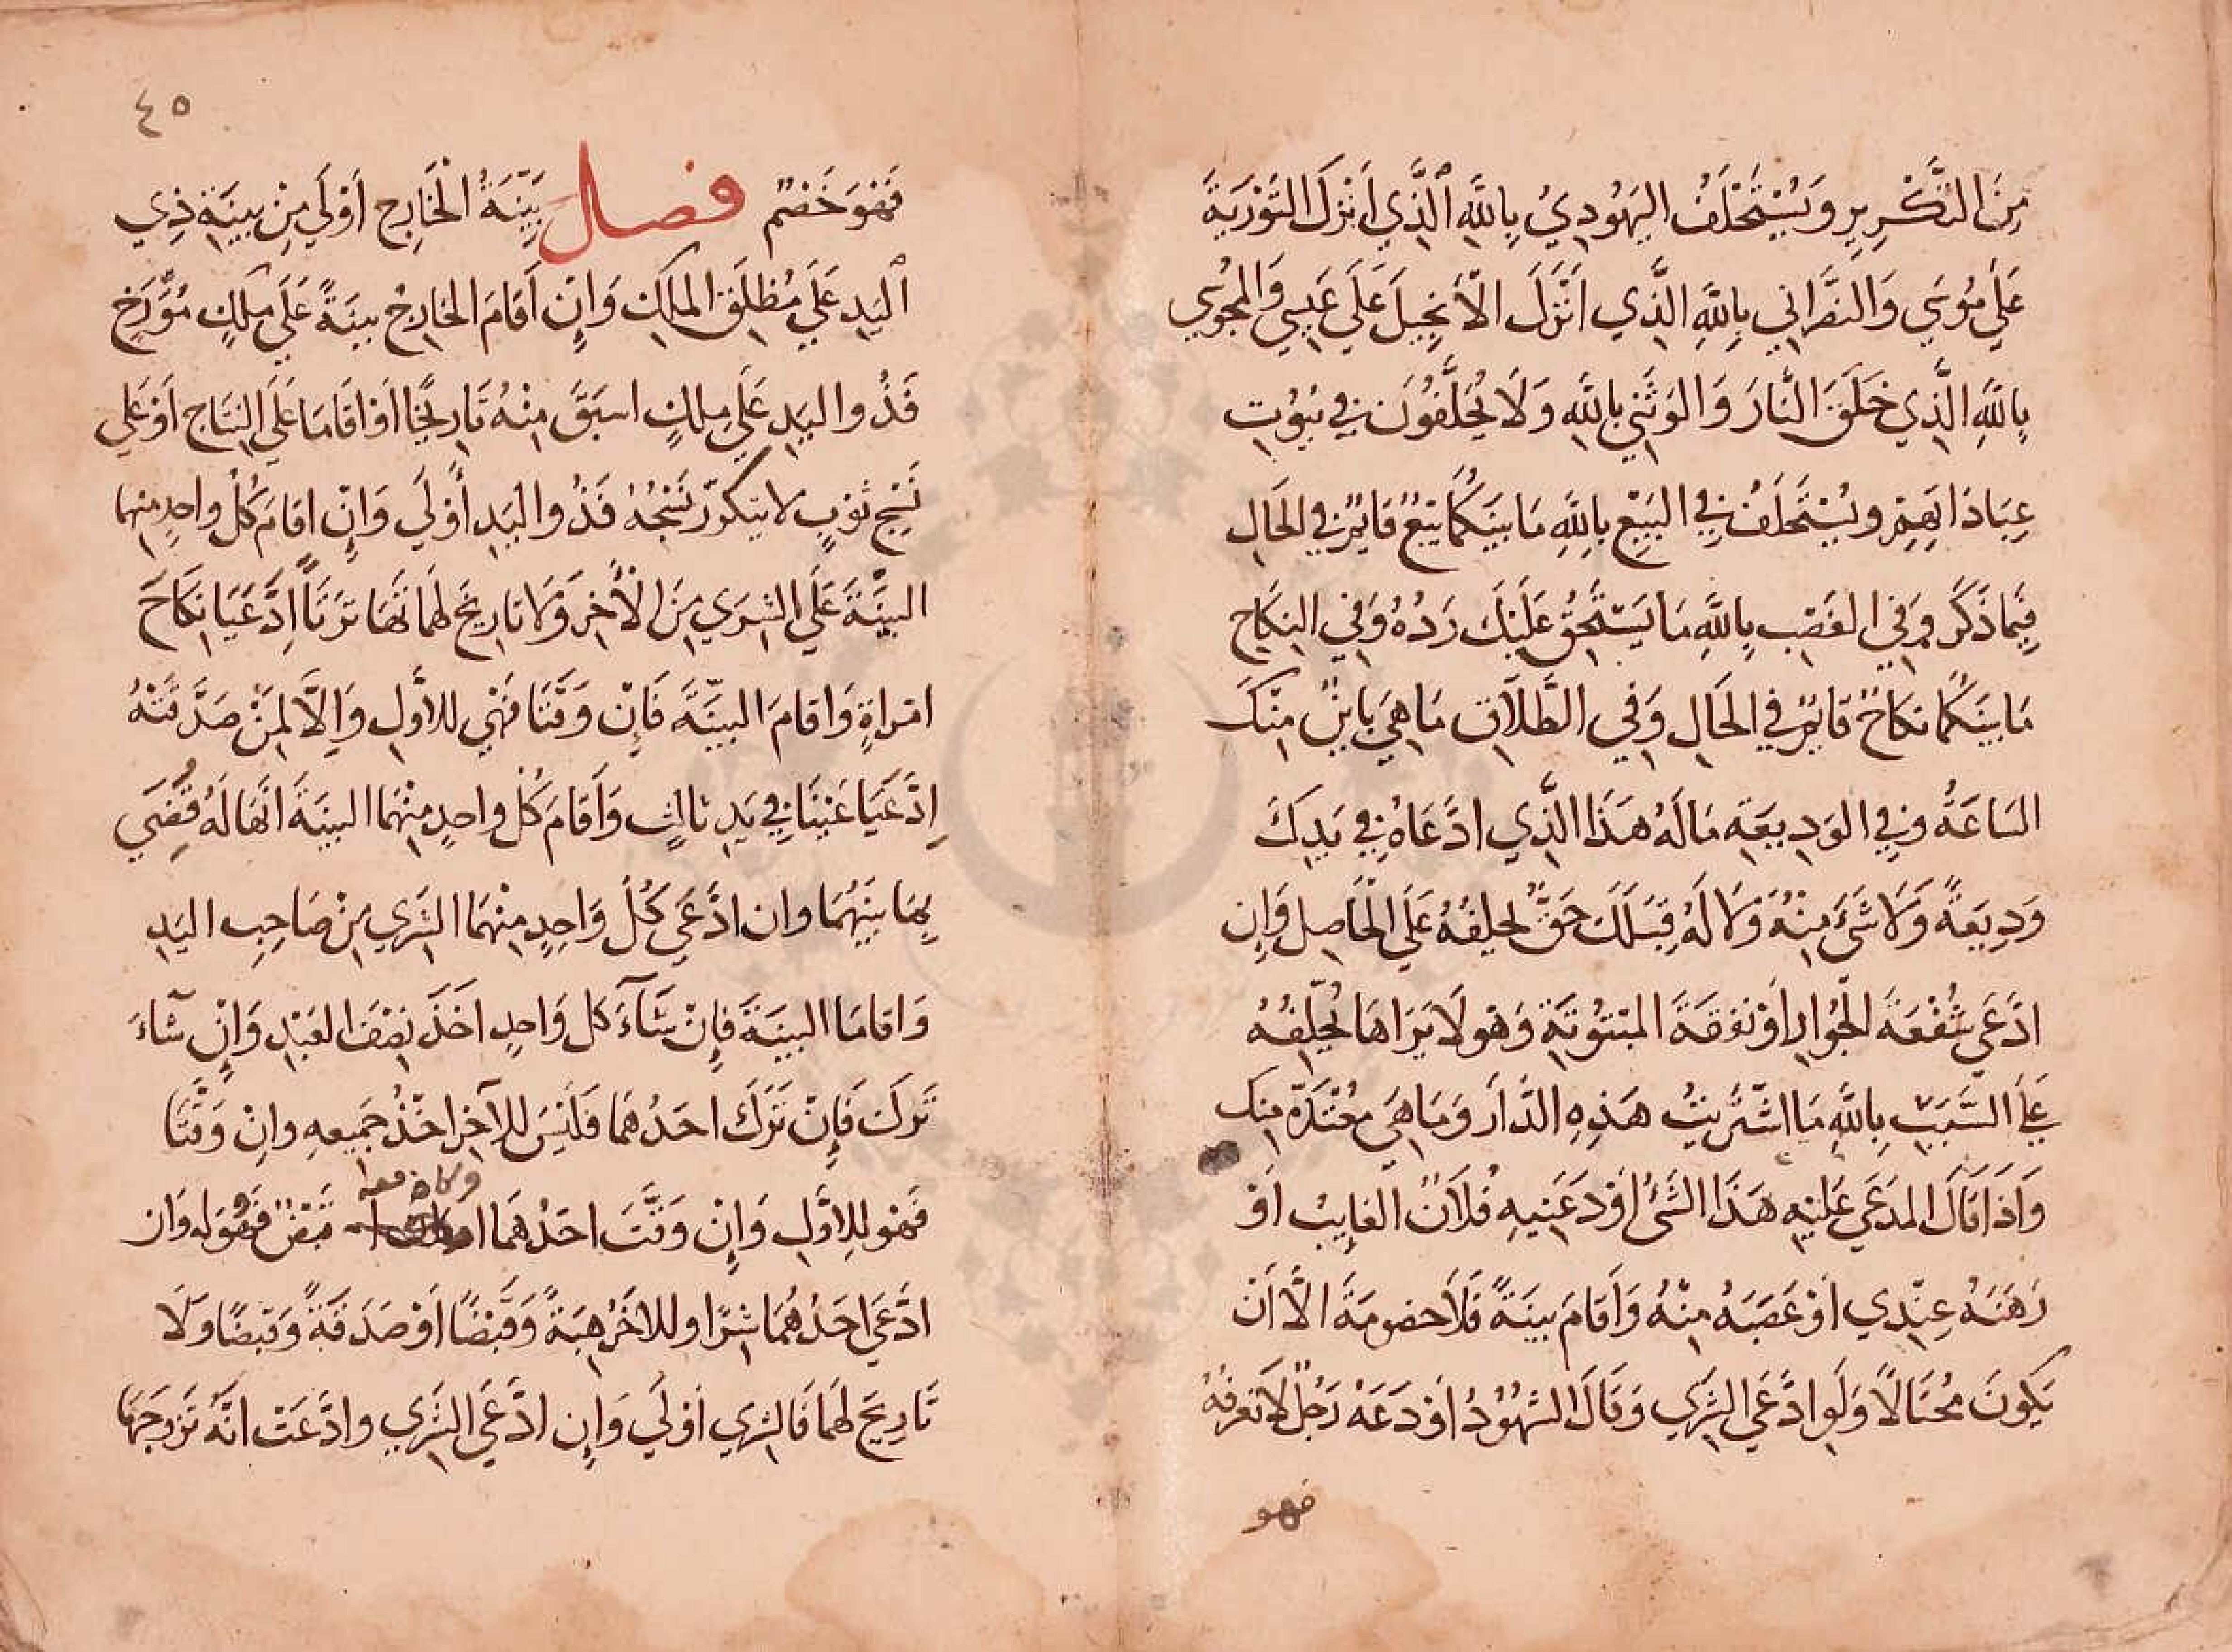 مِنَ التَّكْرِيرِ وَيُسْتَحْلَفُ اليَهُودِيُ بِاللَّهِ الَّذِي اَنْزَلَ التَوْرَيةَ
عَلَي مُوسَي وَالنصْرَاني بِاللَّهِ الذَّي اَنْزَلَ الْاَنجِيلَ عَلَي عَيسي وَالمجُوسي
بِاللَّهِ الَّذِي خَلَقَ النَّارَ وَالوَثَنِي بِاللَّهِ وَلَا يُحَلَّفُونَ فِي بُيُوتِ
عِبَادَاتهِمْ وَيُسْتَحْلَفُ فِي البَيْعِ بِاللَّهِ مَا بَينَكُمَا بَيْعٌ قايمٌ في الحَالِ
فِيمَا ذَكَر وَفي الغَصْبِ بِاللَّهِ مَا يَسْتَحِقُ عَلَيْكَ رَدُهُ وَفي النِكَاحِ
مَا بينَكُمَا نكاحٌ قايمٌ في الحَالِ وَفِي الطَّلَاقِ مَا هِيَ بَاينٌ مِنْكَ
السَاعَةُ وَفِي الوَدِيعَةِ مَا لَهُ هَذَا الذَّي ادَّعَاهُ فِي يَدِكَ
وَدِيعَةً وَلَا شَئَ مِنْهُ وَلَا لَهُ قِبَلَكَ حَقٌ يحلِفُهُ عَلَي الحَاصِل وَاِن
ادَّعَي شُفْعَةَ الجُوَارِ اَوْ نَفَقَةَ المَبْتُوتَةِ وَهُو لَا يَرَاهَا يُحَلِّفُهُ
عَلَي السَّبَبِ بِاللَّهِ مَا اشْتَرَيْتُ هَذِهِ الدَّارَ وَمَا هِيَ مُعْتَدَّة منك
وَاِذَا قَالَ المدعَي عَليْهِ هَذَا الشَئُ اَوْدَعَنِيهِ فُلَانٌ الغَايِبُ اَوْ
رَهَنَهُ عِنْدِي اَوْ غَصَبَهُ مِنْهُ وَاَقَامَ بينَةً فَلَا خصُومَةَ الاَّ اَنْ
يَكُونَ مُحْتَالاً وَلَوِ ادَّعَي الشِرَي وَقَالَ الشُهُودُ اَوْدَعَهُ رَجُلٌ لَا نَعْرِفُهُ
فهو
٤٥
فَهُوَ خَصْمٌ فصل بَيِّنَةُ الْخَارِجِ اَوْلَي مِنْ بينَةِ ذِي
اليَدِ عَلَي مُطْلَقِ الملكِ وَاِنْ اَقَامَ الخَارِجُ بينَةً عَلَي مِلكٍ مُؤَّرَخٍ
فَذُو اليَدِ عَلَي مِلكٍ اسبَقَ مِنْهُ تَارِيخًا اَوْ اَقَامَا عَلَي النِتَاجِ اَوْ عَلي
نَسْجِ ثَوْبٍ لا يتكرّر نَسْجُهُ فَذُو اليَدِ أَوْلَي وَاِنْ اقامَ كُلُ واحدٍ منهما
البيّنَةَ عَلَي الشِرَي مِنَ الْأخِر وَلَا تاريخ لَهمَا تَهَاتَرَتَا اِدَّعَيَا نِكَاحَ
امْرَاةٍ وَاقامَ البيّنَةَ فَاِنْ وَقَّتَا فَهْي للاَولِ وَاِلَّا لِمَنْ صَدَّقَتْهُ
اِدَّعَيَا عَيْنًا فِي يَدِ ثالثٍ وَاَقَامَ كُلُ واحدٍ مِنْهُمَا البينَةَ انَّهَا لَهُ قُضِيَ
بِهَا بيَنَهُمَا وان ادَّعَي كُلُ وَاحِدٍ مِنْهُمَا الشِرَي مِنْ صَاحِبِ اليَدِ
وَاقامَا البينَةَ فَاِنْ شَآءَ كل وَاحِدٍ اخَذَ نِصْفَ العَبْدِ وَاِنْ شآءَ
تَرَكَ فَاِنْ تَرَكَ احَدُهُمَا فَلَيْسَ للآخِر اخْذُ جَمِيعهِ وانْ وَقَّتَا
وكان معه
فَهْو لِلاوَّلِ وَاِنْ وَقَّتَ احَدُهُمَا قَبْضٌ فَهُوَ له وَان
ادَّعَي احَدُهُمَا شرَا وللاخَر هِبَةً وَقَبْضًا اَوْ صَدَقَةً وَقَبْضًا وَلَا
تَارِيخَ لهمَا فَالشِرَي اَوْلَي وَاِن ادَّعَي الشِرَي وادَّعَتْ انَّهُ تَزَوجَهَا